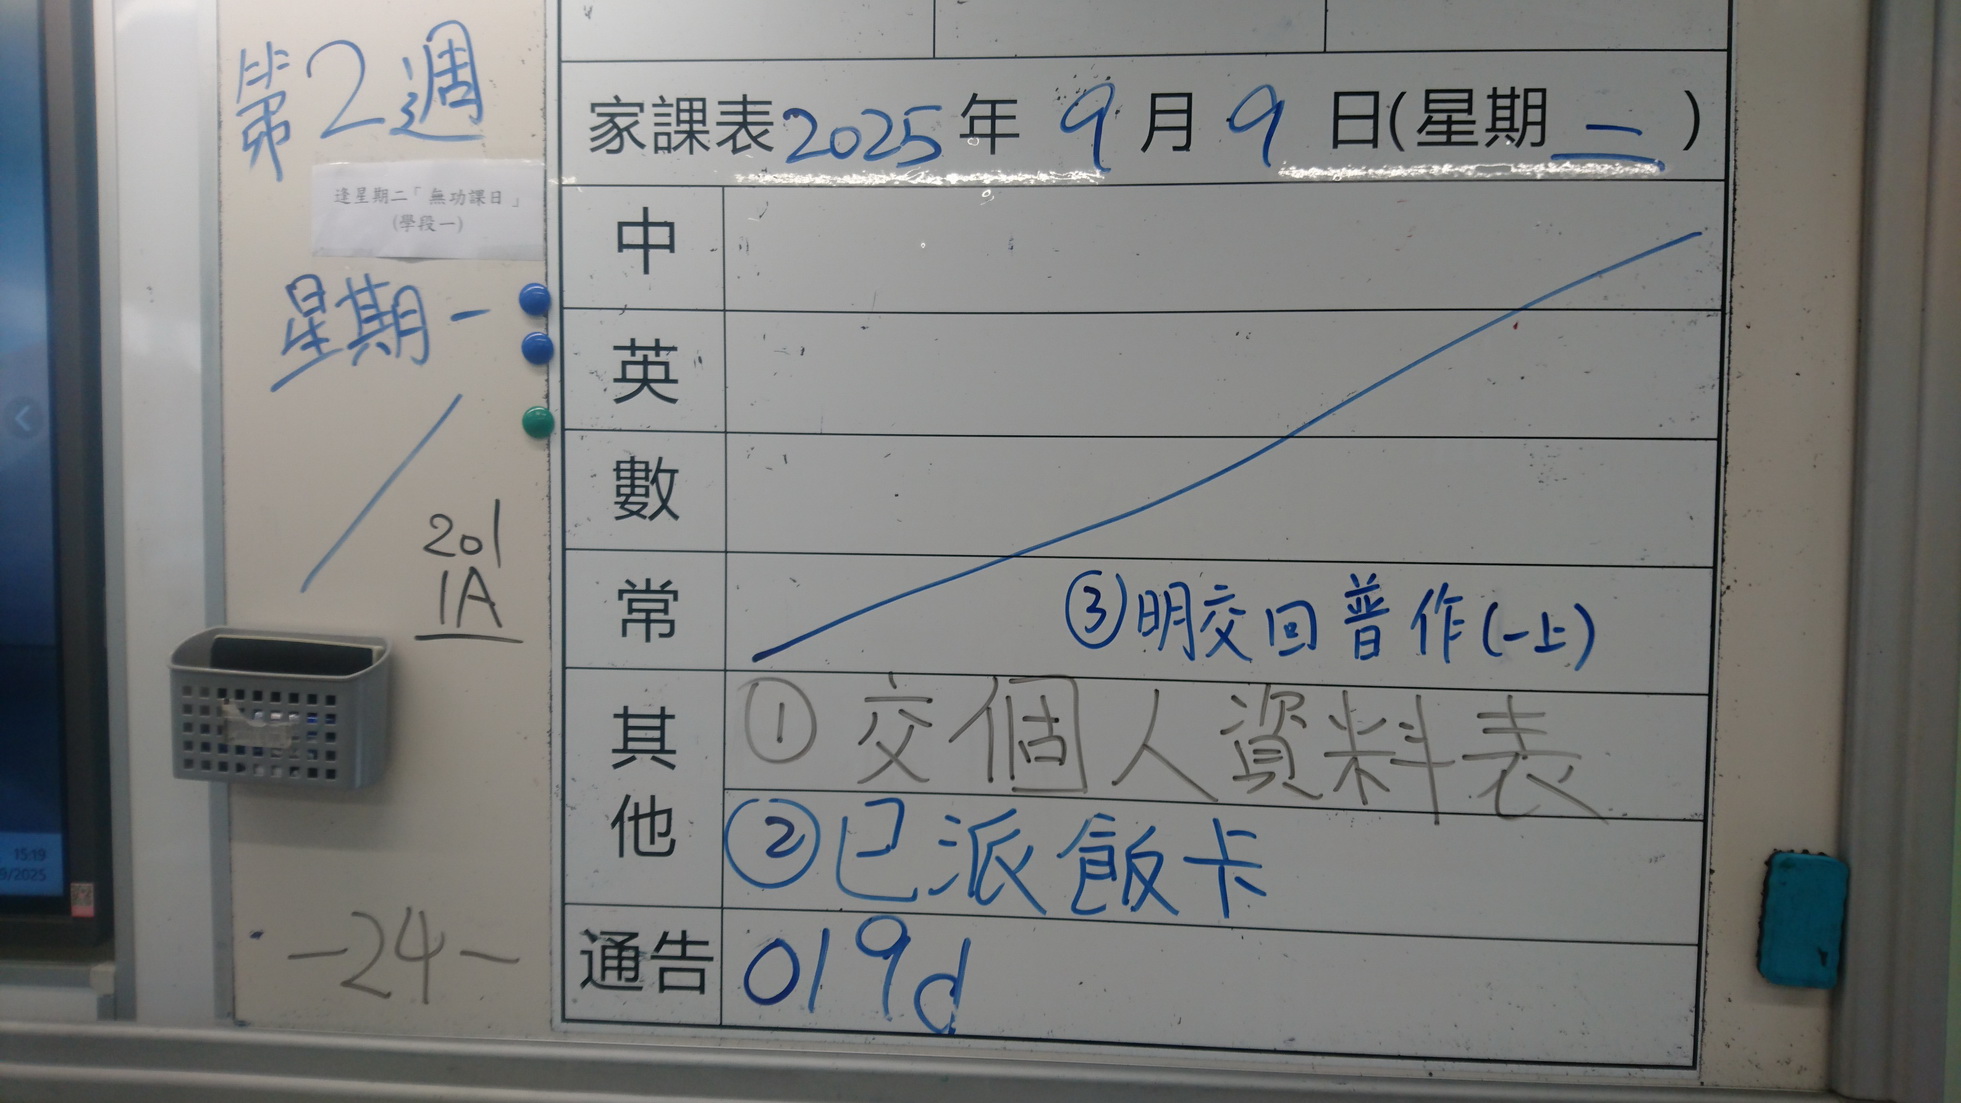 第2週
逢星期二「無功課日」
(學段一)
星期一
201
1A
-24-
15:19
9/2025
家課表2025年9月9日(星期二)
中
英
數
常
③明交回普作(一上)
其他
①交個人資料表
②已派飯卡
通告 019d